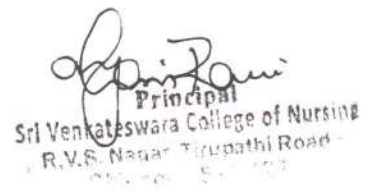 Principal
Sri Venkateswara College of Nursing
R.V.S. Nagar Tirupathi Road